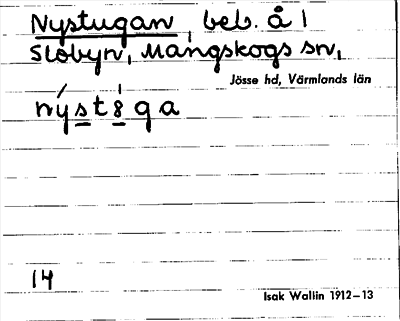 Nystugan, beb. å 1
Slobyn, Mangskogs sn,
Jösse hd, Värmlands län
nýst8ga
14
Isak Wallin 1912–13